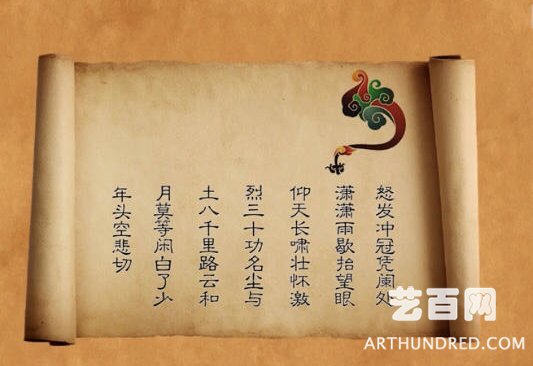 怒发冲冠凭阑处
潇潇雨歇抬望眼
仰天长啸壮怀激
烈三十功名尘与
土八千里路云和
月莫等闲白了少
年头空悲切
艺百网
ARTHUNDRED.COM